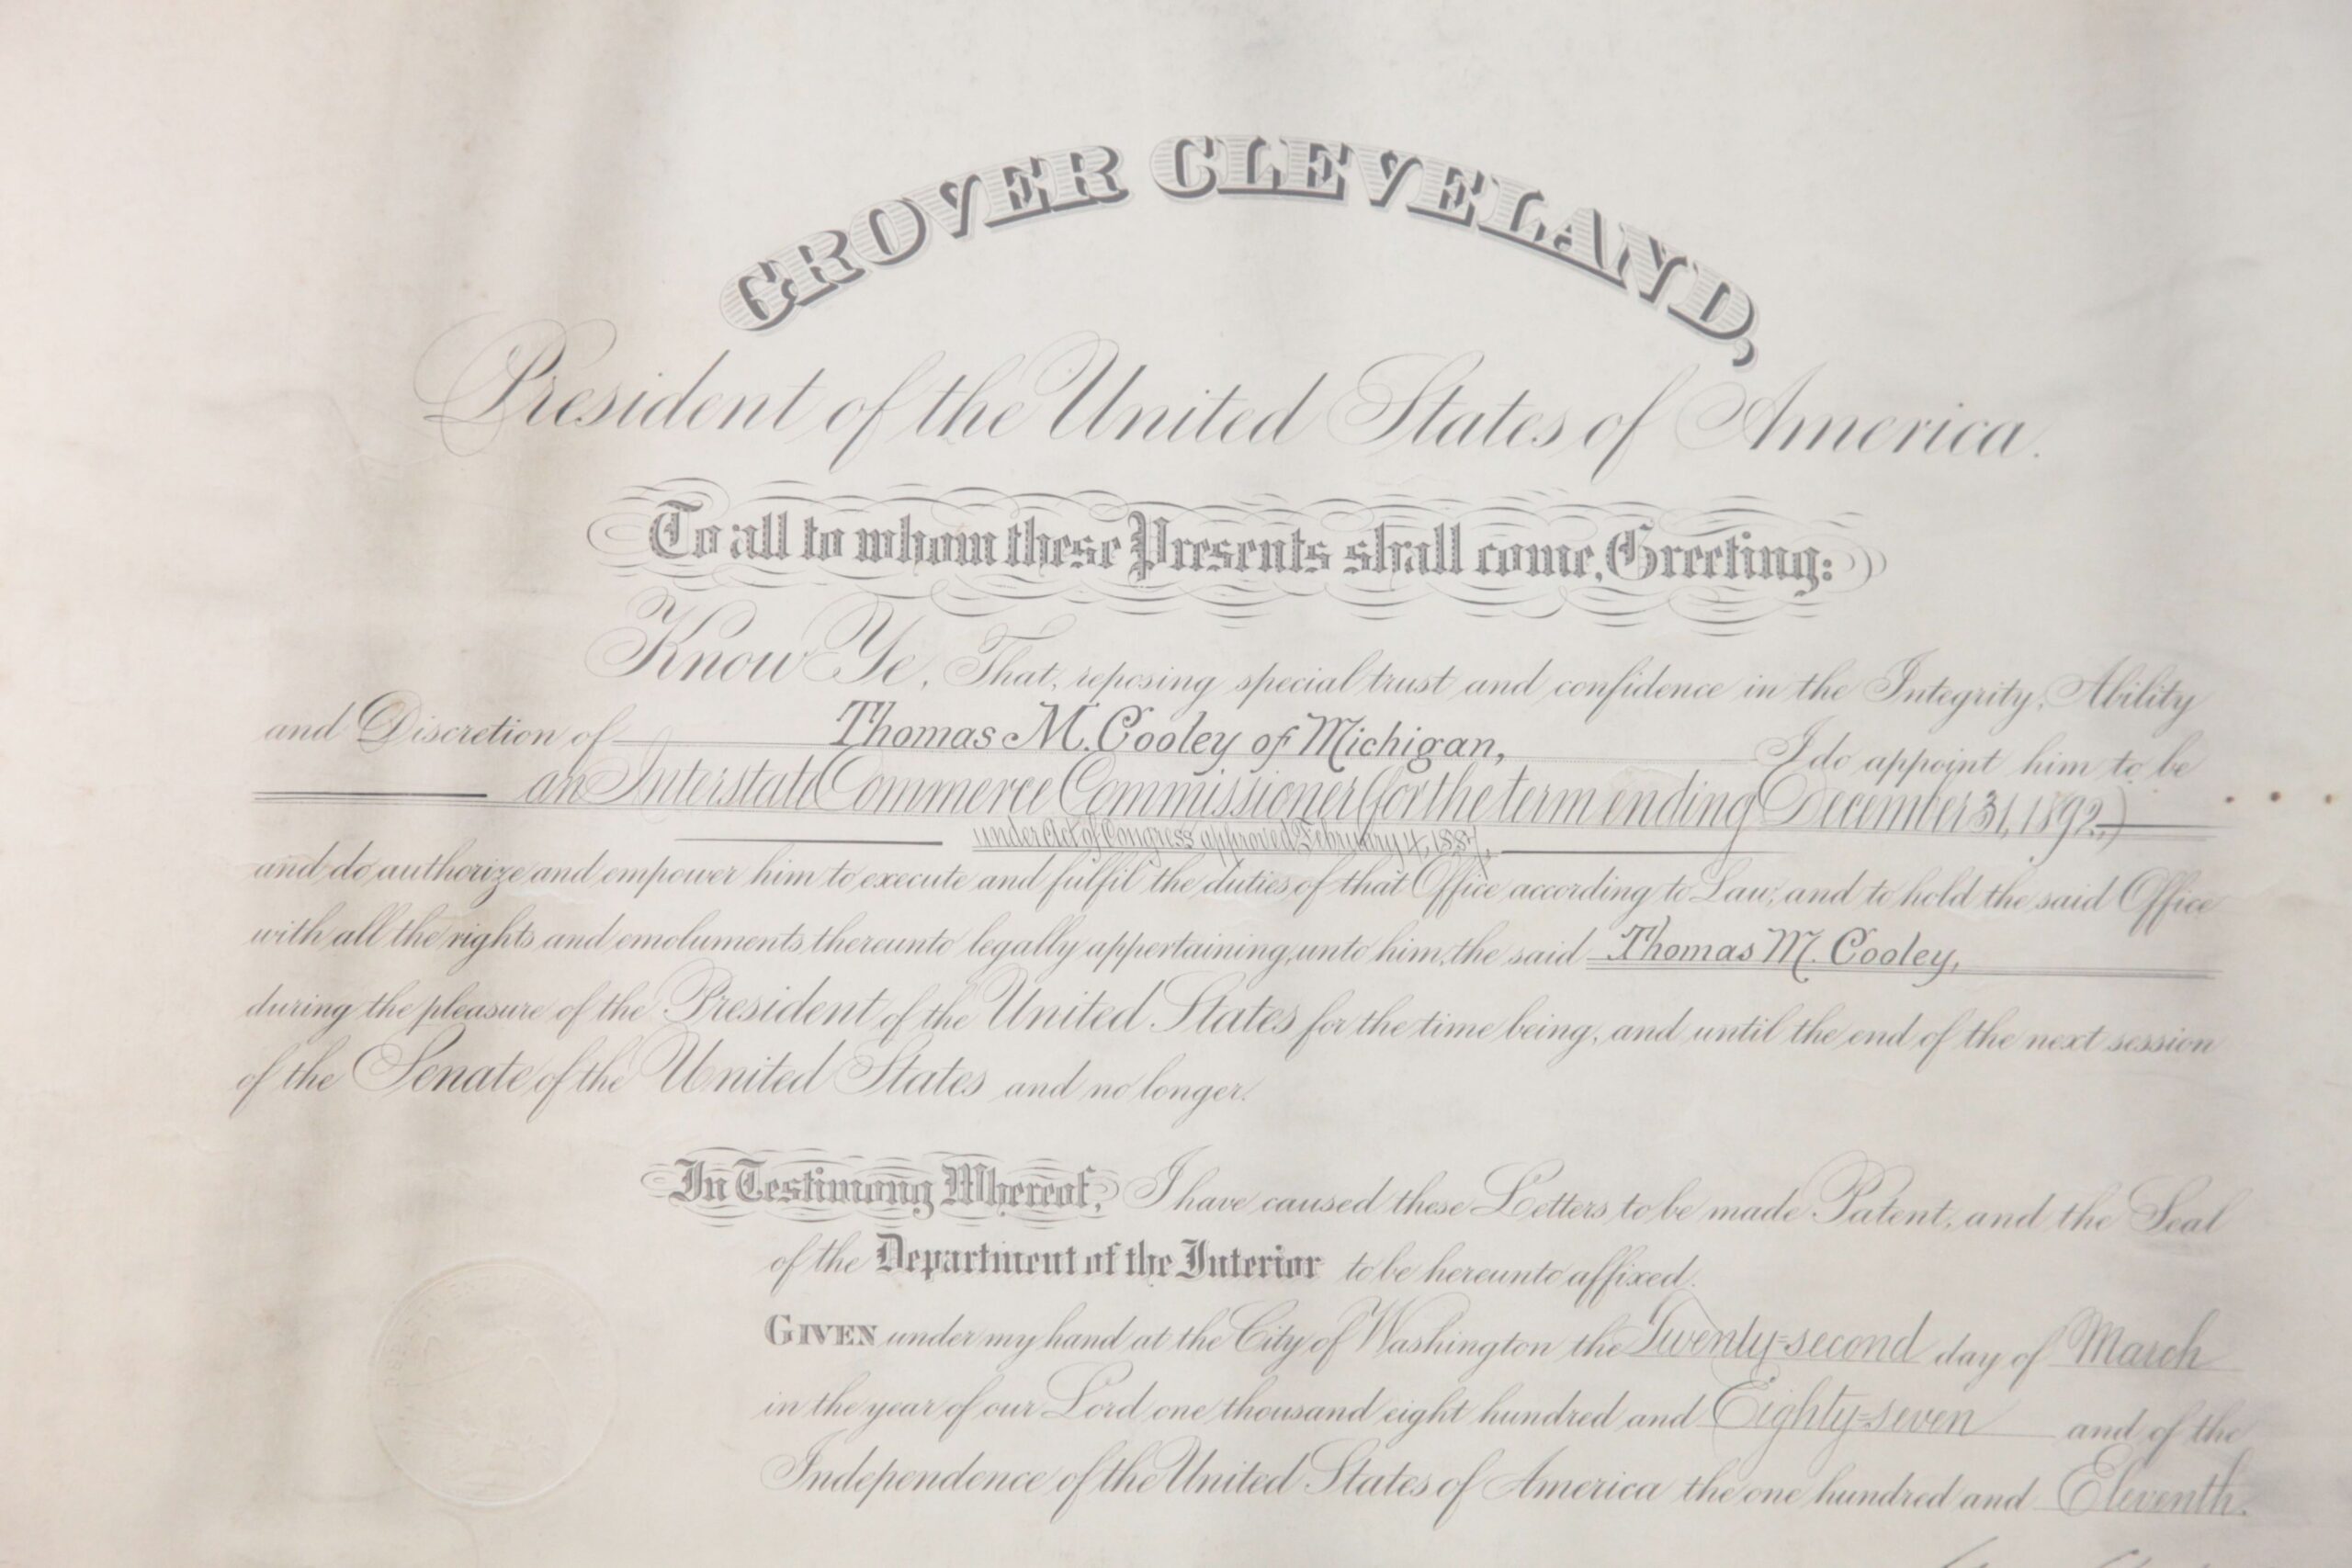 GROVER CLEVELAND,
President of the United States of America.
To all to whom these Presents shall come, Greeting:
Know Ye, That, reposing special trust and confidence in the Integrity, Ability
and Discretion of Thomas M. Cooley of Michigan, I do appoint him to be
an Interstate Commerce Commissioner (for the term ending December 31, 1892,)
under Act of Congress approved February 4, 1887,
and do authorize and empower him to execute and fulfil the duties of that Office according to Law; and to hold the said Office
with all the rights and emoluments thereunto legally appertaining, unto him, the said Thomas M. Cooley,
during the pleasure of the President of the United States for the time being, and until the end of the next session
of the Senate of the United States and no longer.
In Testimony Whereof, I have caused these Letters to be made Patent, and the Seal
of the Department of the Interior to be hereunto affixed.
GIVEN under my hand at the City of Washington the Twenty-second day of March
in the year of our Lord one thousand eight hundred and Eighty-seven and of the
Independence of the United States of America the one hundred and Eleventh.